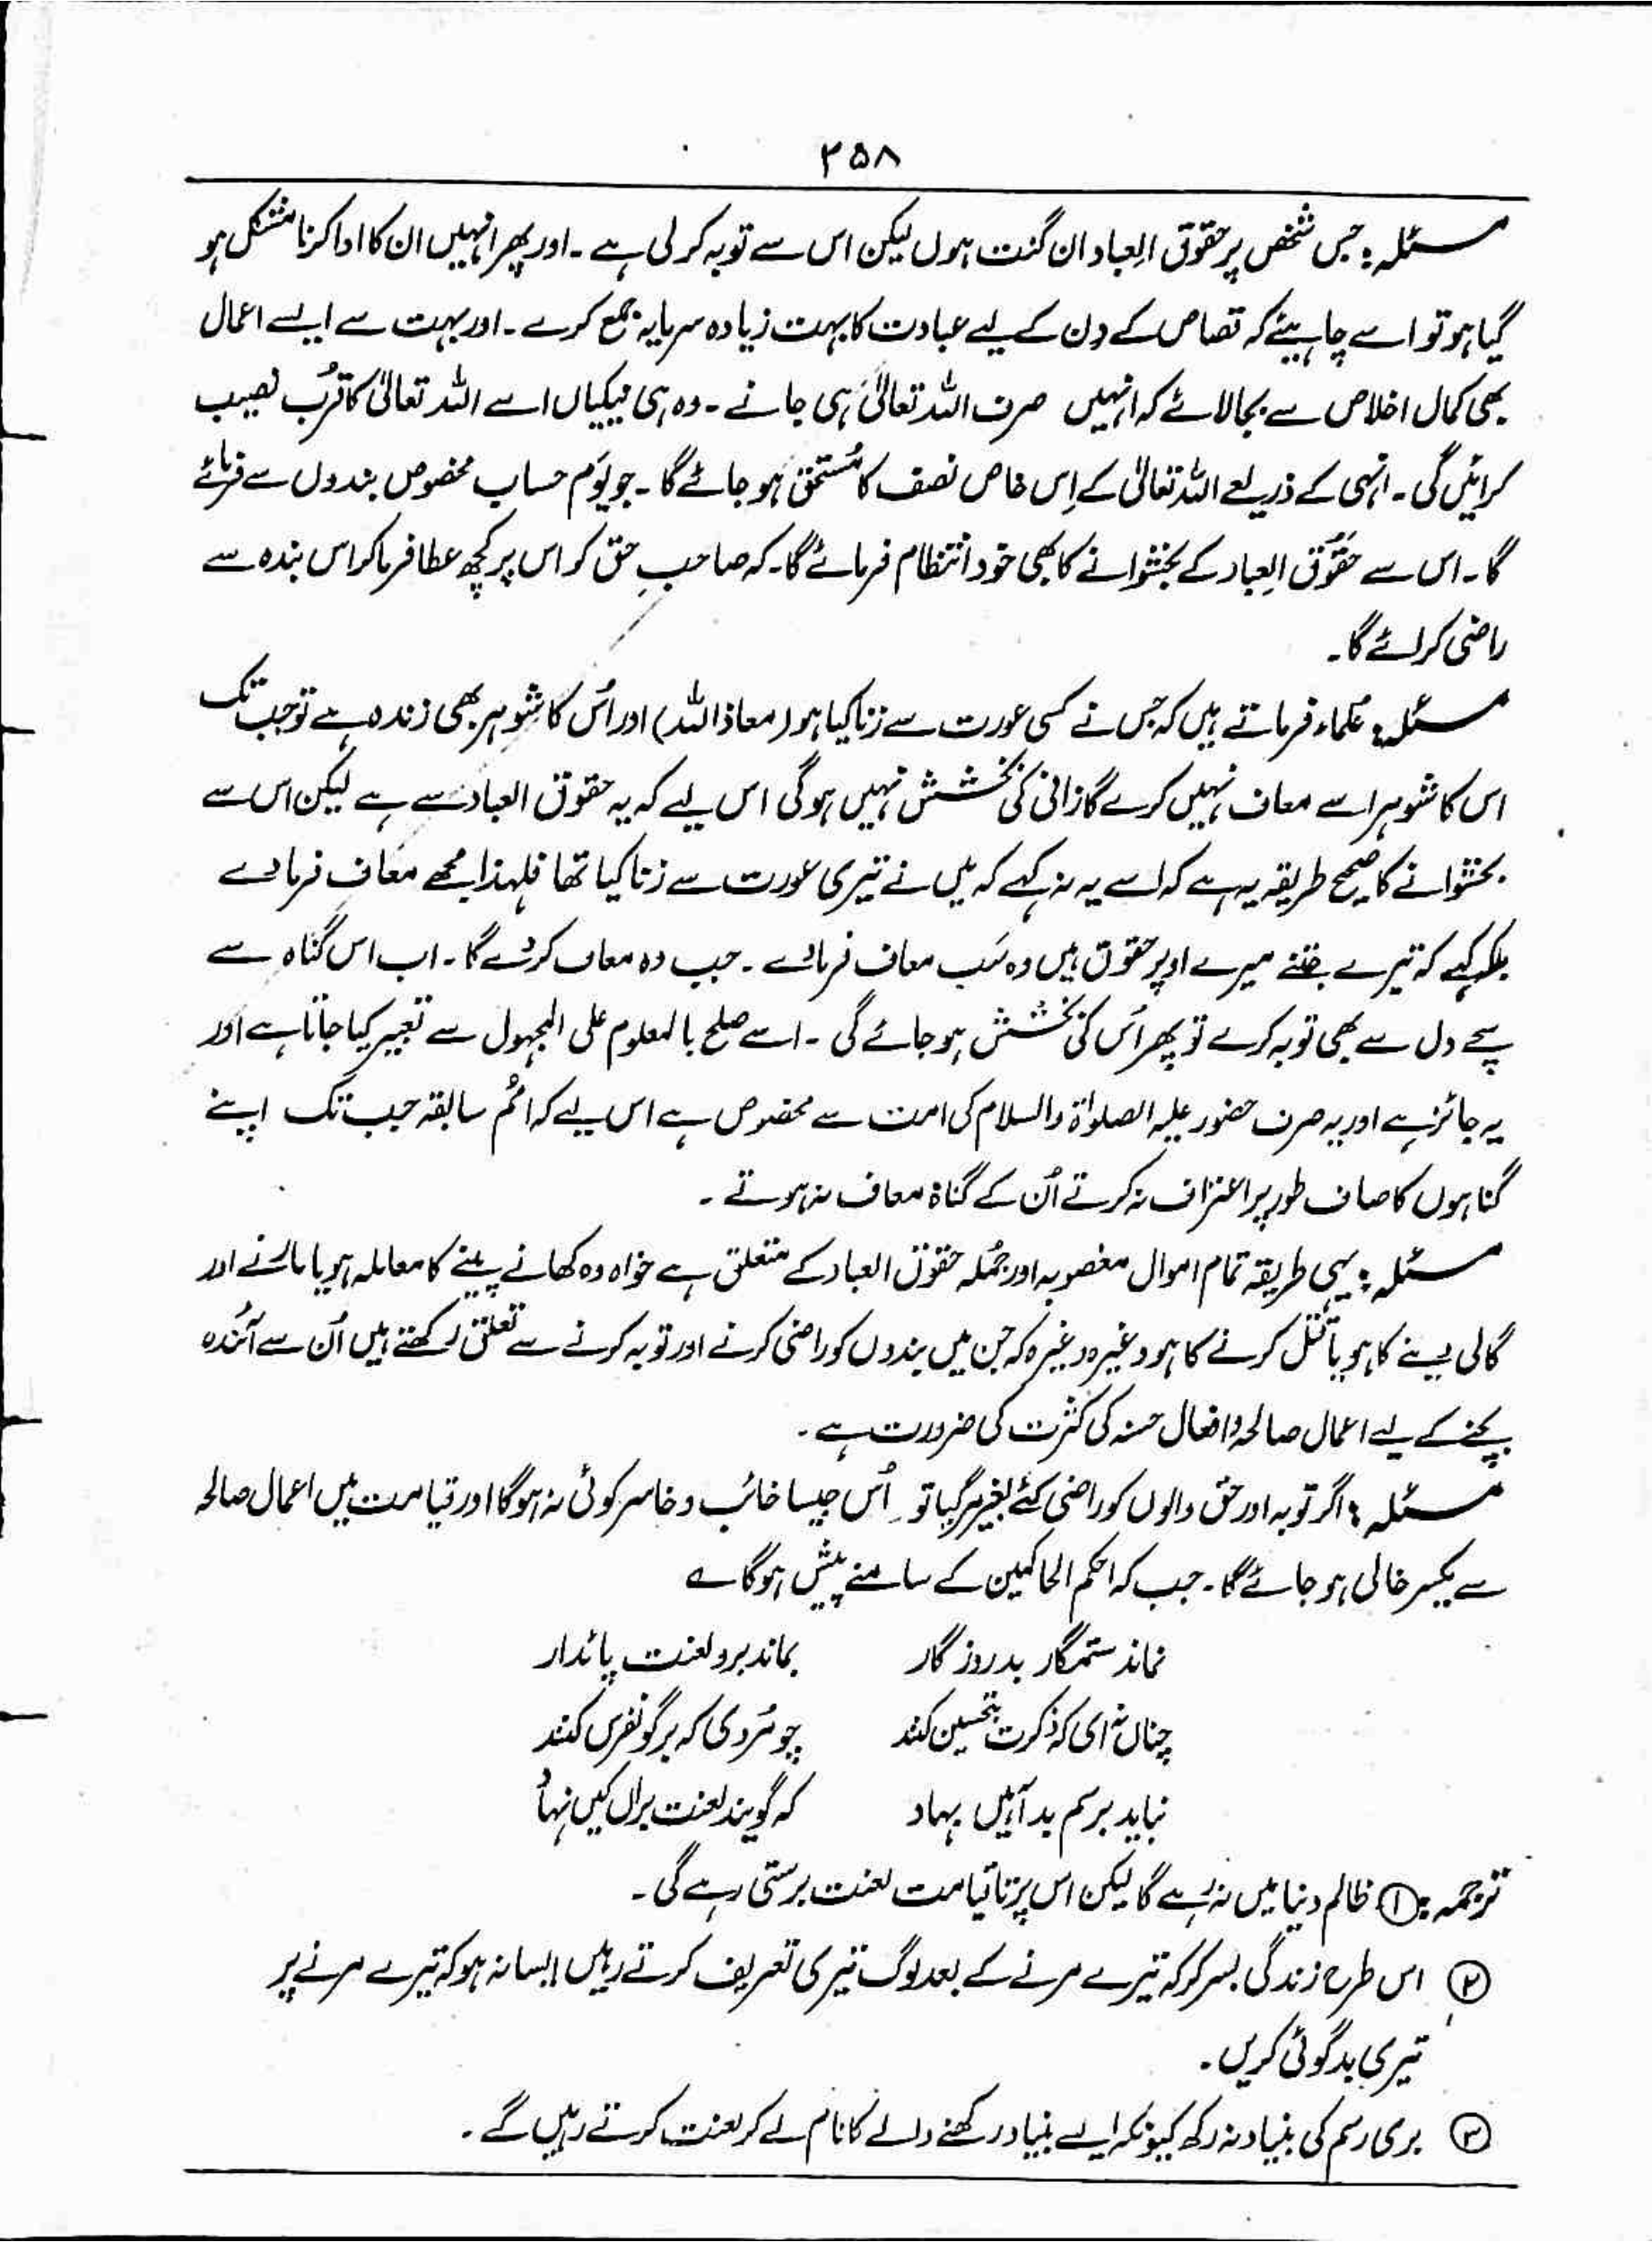 ۳۵۸
مسئلہ: جس شخص پر حقوق العباد ان گنت ہوں لیکن اس سے توبہ کر لی ہے۔ اور پھر انہیں ان کا ادا کرنا مشکل ہو
گیا ہو تو اسے چاہیئے کہ قصاص کے دن کے لیے عبادت کا بہت زیادہ سرمایہ جمع کرے۔ اور بہت سے ایسے اعمال
بھی کمال اخلاص سے بجا لائے کہ انہیں صرف اللہ تعالیٰ ہی جانے۔ وہ ہی نیکیاں اسے اللہ تعالیٰ کا قُرب نصیب
کرائیں گی۔ انہی کے ذریعے اللہ تعالیٰ کے اِس خاص نصف کا مُستحق ہو جائے گا۔ جو یَوم حساب مخصوص بندوں سے فرمائے
گا۔ اس سے حقُوق العِباد کے بخشوانے کا بھی خود انتظام فرمائے گا۔ کہ صاحبِ حق کو اس پر کچھ عطا فرما کر اس بندہ سے
راضی کرائے گا۔
مسئلہ: عُلماء فرماتے ہیں کہ جس نے کسی عورت سے زنا کیا ہو (معاذ اللہ) اور اُس کا شوہر بھی زندہ ہے تو جب تک
اس کا شوہر اسے معاف نہیں کرے گا زانی کی بخشش نہیں ہوگی اس لیے کہ یہ حقوق العباد سے ہے لیکن اس سے
بخشوانے کا صحیح طریقہ یہ ہے کہ اسے یہ نہ کہے کہ میں نے تیری عورت سے زنا کیا تھا فلہذا مجھے معاف فرما دے
بلکہ کہے کہ تیرے جتنے میرے اوپر حقوق ہیں وہ سَب معاف فرما دے۔ جب وہ معاف کر دے گا۔ اب اس گناہ سے
سچے دل سے بھی توبہ کرے تو پھر اُس کی بخشش ہو جائے گی۔ اسے صلح بالمعلوم علی المجہول سے تعبیر کیا جاتا ہے اور
یہ جائز ہے اور یہ صرف حضور علیہ الصلواۃ والسلام کی امت سے مخصوص ہے اس لیے کہ اُمُم سابقہ جب تک اپنے
گناہوں کا صاف طور پر اعتراف نہ کرتے اُن کے گناہ معاف نہ ہوتے۔
مسئلہ: یہی طریقہ تمام اموال مغصوبہ اور جُملہ حقوق العباد کے متعلق ہے خواہ وہ کھانے پینے کا معاملہ ہو یا مارنے اور
گالی دینے کا ہو یا قتل کرنے کا ہو وغیرہ وغیرہ کہ جن میں بندوں کو راضی کرنے اور توبہ کرنے سے تعلق رکھتے ہیں اُن سے آئندہ
بچنے کے لیے اعمال صالحہ و افعال حسنہ کی کثرت کی ضرورت ہے۔
مسئلہ: اگر توبہ اور حق والوں کو راضی کئے بغیر مر گیا تو اُس جیسا خائب و خاسر کوئی نہ ہوگا اور قیامت میں اعمال صالحہ
سے یکسر خالی ہو جائے گا۔ جب کہ احکم الحاکمین کے سامنے پیش ہوگا ے
نماند ستمگار بد روز گار بماند برو لعنت پائدار
چناں نہ ای کہ ذکرت بتحسین کند چو مُردی کہ بر گو نفرس کنند
نباید برسم بد آئیں بہاد کہ گویند لعنت براں کیں نہاُد
ترجمہ: ① ظالم دنیا میں نہ رہے گا لیکن اس پر تا قیامت لعنت برستی رہے گی۔
② اس طرح زندگی بسر کر کہ تیرے مرنے کے بعد لوگ تیری تعریف کرتے رہیں ایسا نہ ہو کہ تیرے مرنے پر
تیری بد گوئی کریں۔
③ بری رسم کی بنیاد نہ رکھ کیونکہ ایسے بنیاد رکھنے والے کا نام لے کر لعنت کرتے رہیں گے۔